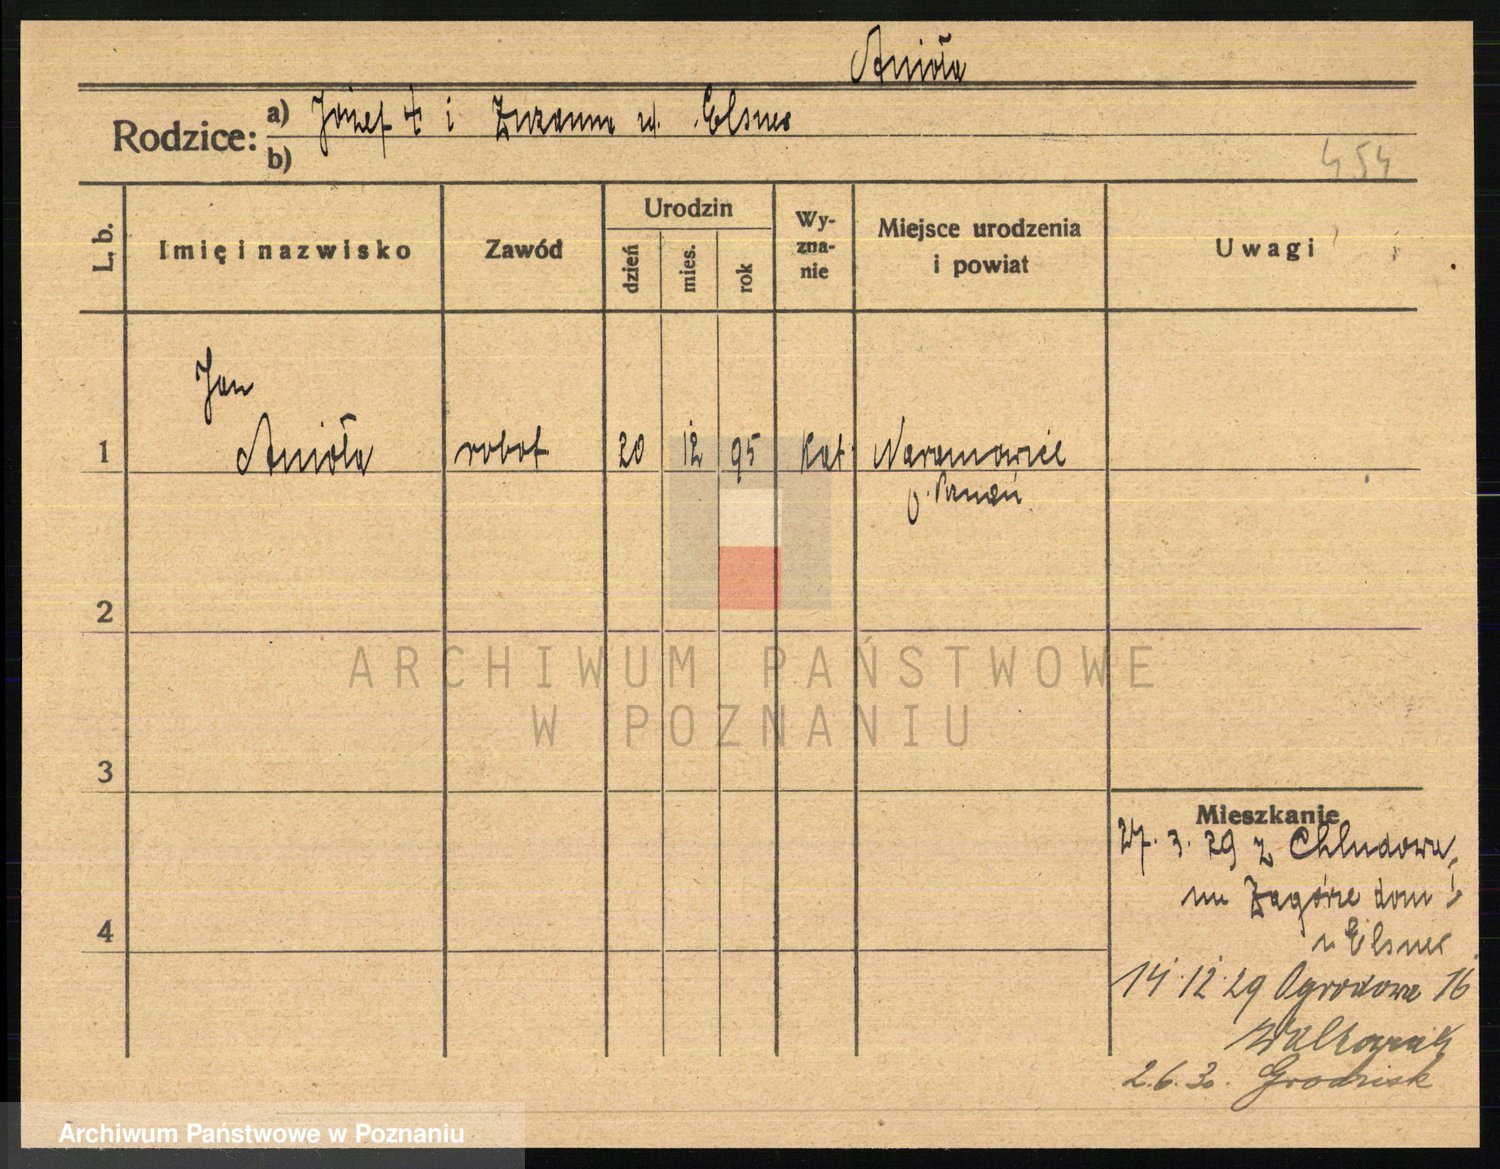 Anioła
Rodzice: a) Józef † i Zuzanna ur. Elsner
b)
454
L. b. Imię i nazwisko Zawód Urodzin dzień mies. rok Wyzna-nie Miejsce urodzenia i powiat Uwagi
Jan
1 Anioła robot 20 12 95 kat. Naramowice
p. Poznań
2
ARCHIWUM PAŃSTWOWE
W POZNANIU
3
Mieszkanie
27. 3. 29 z Chludowa,
na Zagórze dom
u Elsner
4
14. 12. 29 Ogrodowa 16
2.6.30. Grodzisk
Archiwum Państwowe w Poznaniu